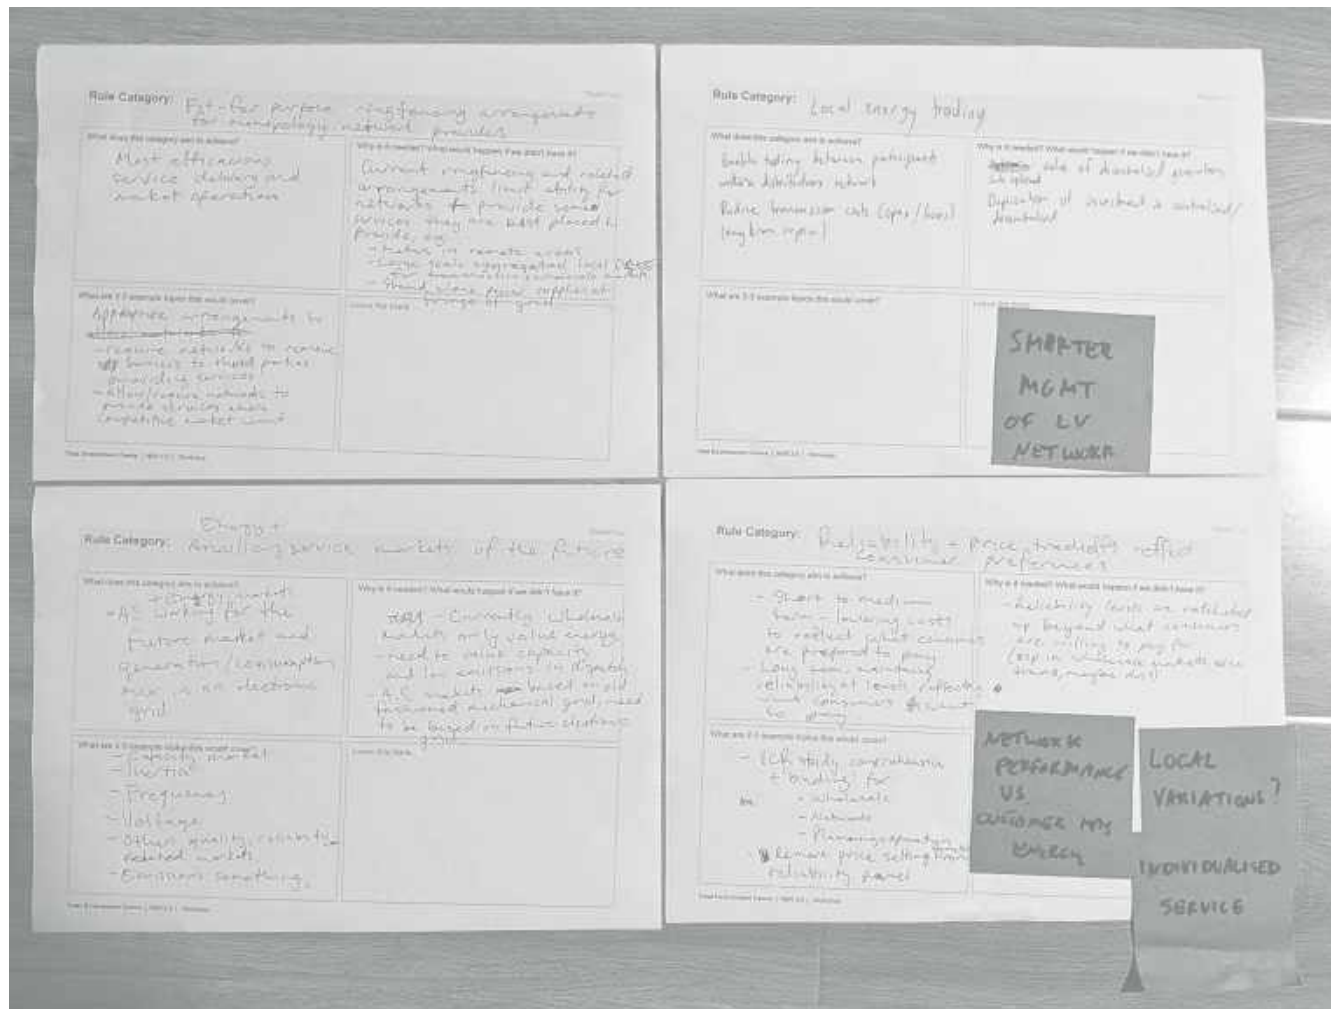 Rule Category: Fit-for purpose ringfencing arrangements
for monopology network providers
What does this category aim to achieve?
Most efficacious
service delivery and
market operations
Why is it needed? What would happen if we didn't have it?
Current ringfencing and related
arrangements limit ability for
networks to provide some
services they are best placed to
provide, eg
- in remote areas
- Large scale aggregated local
- Stand alone power supplies at
fringe of grid
What are 2-3 example topics this would cover?
Appropriate arrangements to
- require networks to remove
barriers to third parties
providing services
- Allow/require networks to
provide services where
competitive market
Leave this blank
Rule Category: Local energy trading
What does this category aim to achieve?
Enable trading between participants
within distribution network
Reduce transmission costs (opex/losses)
long term capex)
Why is it needed? What would happen if we didn't have it?
value of distributed generation
Duplication of investment in centralised/
decentralised
What are 2-3 example topics this would cover?
SMARTER
MGMT
OF LV
NETWORK
Energy +
Rule Category: Ancillary service markets of the future
What does this category aim to achieve?
+ Energy markets
- AS working for the
future market and
generation/consumption
mix in an electronic
grid
Why is it needed? What would happen if we didn't have it?
- Currently wholesale
markets only value energy
- need to value capacity
and low emissions in dispatch
- A.S. markets based on old
fashioned mechanical grid, need
to be based on future electronic
grid
What are 2-3 example topics this would cover?
- Capacity market
- Inertia
- Frequency
- Voltage
- Other quality, reliability
related markets
- Emissions something.
Leave this blank
Rule Category: Reliability + price tradeoffs reflect
consumer preferences
What does this category aim to achieve?
- Short to medium
term - lowering costs
to reflect what consumers
are prepared to pay
- Long term maintaining
reliability at levels reflecting
what consumers want
to pay.
Why is it needed? What would happen if we didn't have it?
- Reliability levels are ratcheted
up beyond what consumers
are willing to pay for
(esp in wholesale markets also
trans, maybe dist)
What are 2-3 example topics this would cover?
- VCR study comprehensive
+ binding for
- Wholesale
- Networks
- Planning
- Remove price setting from
reliability panel
NETWORK
PERFORMANCE
VS
CUSTOMER
ENERGY
LOCAL
VARIATIONS?
INDIVIDUALISED
SERVICE